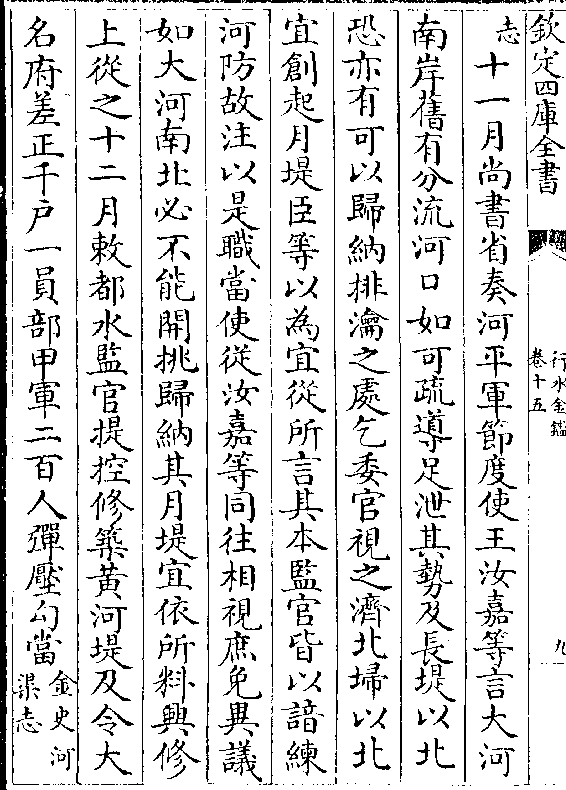 欽定四庫全書
行水金鑑
卷十五
九
志
十一月尚書省奏河平軍節度使王汝嘉等言大河
南岸舊有分流河口如可疏導足泄其勢及長堤以北
恐亦有可以歸納排瀹之處乞委官視之濟北埽以北
宜創起月堤臣等以為宜從所言其本監官皆以諳練
河防故注以是職當使從汝嘉等同往相視庶免異議
如大河南北必不能開挑歸納其月堤宜依所料興修
上從之十二月敕都水監官提控修築黃河堤及令大
名府差正千户一員部甲軍二百人彈壓勾當
金史河
渠志